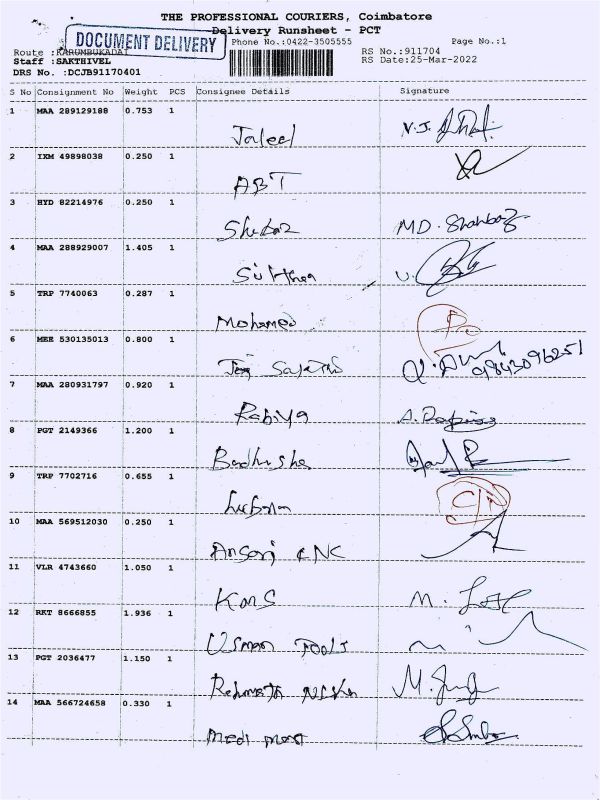 THE PROFESSIONAL COURIERS, Coimbatore
Delivery Runsheet - PCT
DOCUMENT DELIVERY
Phone No.:0422-3505555
Page No.:1
Route :KARUMBUKADAI
RS No.:911704
Staff :SAKTHIVEL
RS Date:25-Mar-2022
DRS No. :DCJB91170401
S No Consignment No Weight PCS Consignee Details Signature
1 MAA 289129188 0.753 1
Jaleel V.J.
2 IXM 49898038 0.250 1
ABT
3 HYD 82214976 0.250 1
Shebaz MD. Shahbaz
4 MAA 288929007 1.405 1
5 TRP 7740063 0.287 1
Mohamed
6 MEE 530135013 0.800 1
9843096251
7 MAA 280931797 0.920 1
Rabiya A.
8 PGT 2149366 1.200 1
Badhusha
9 TRP 7702716 0.655 1
10 MAA 569512030 0.250 1
Ansari CNC
11 VLR 4743660 1.050 1
KMS M.
12 RKT 8666855 1.936 1
Usman Tools
13 PGT 2036477 1.150 1
Rehmath Nisha M.
14 MAA 566724658 0.330 1
Medi